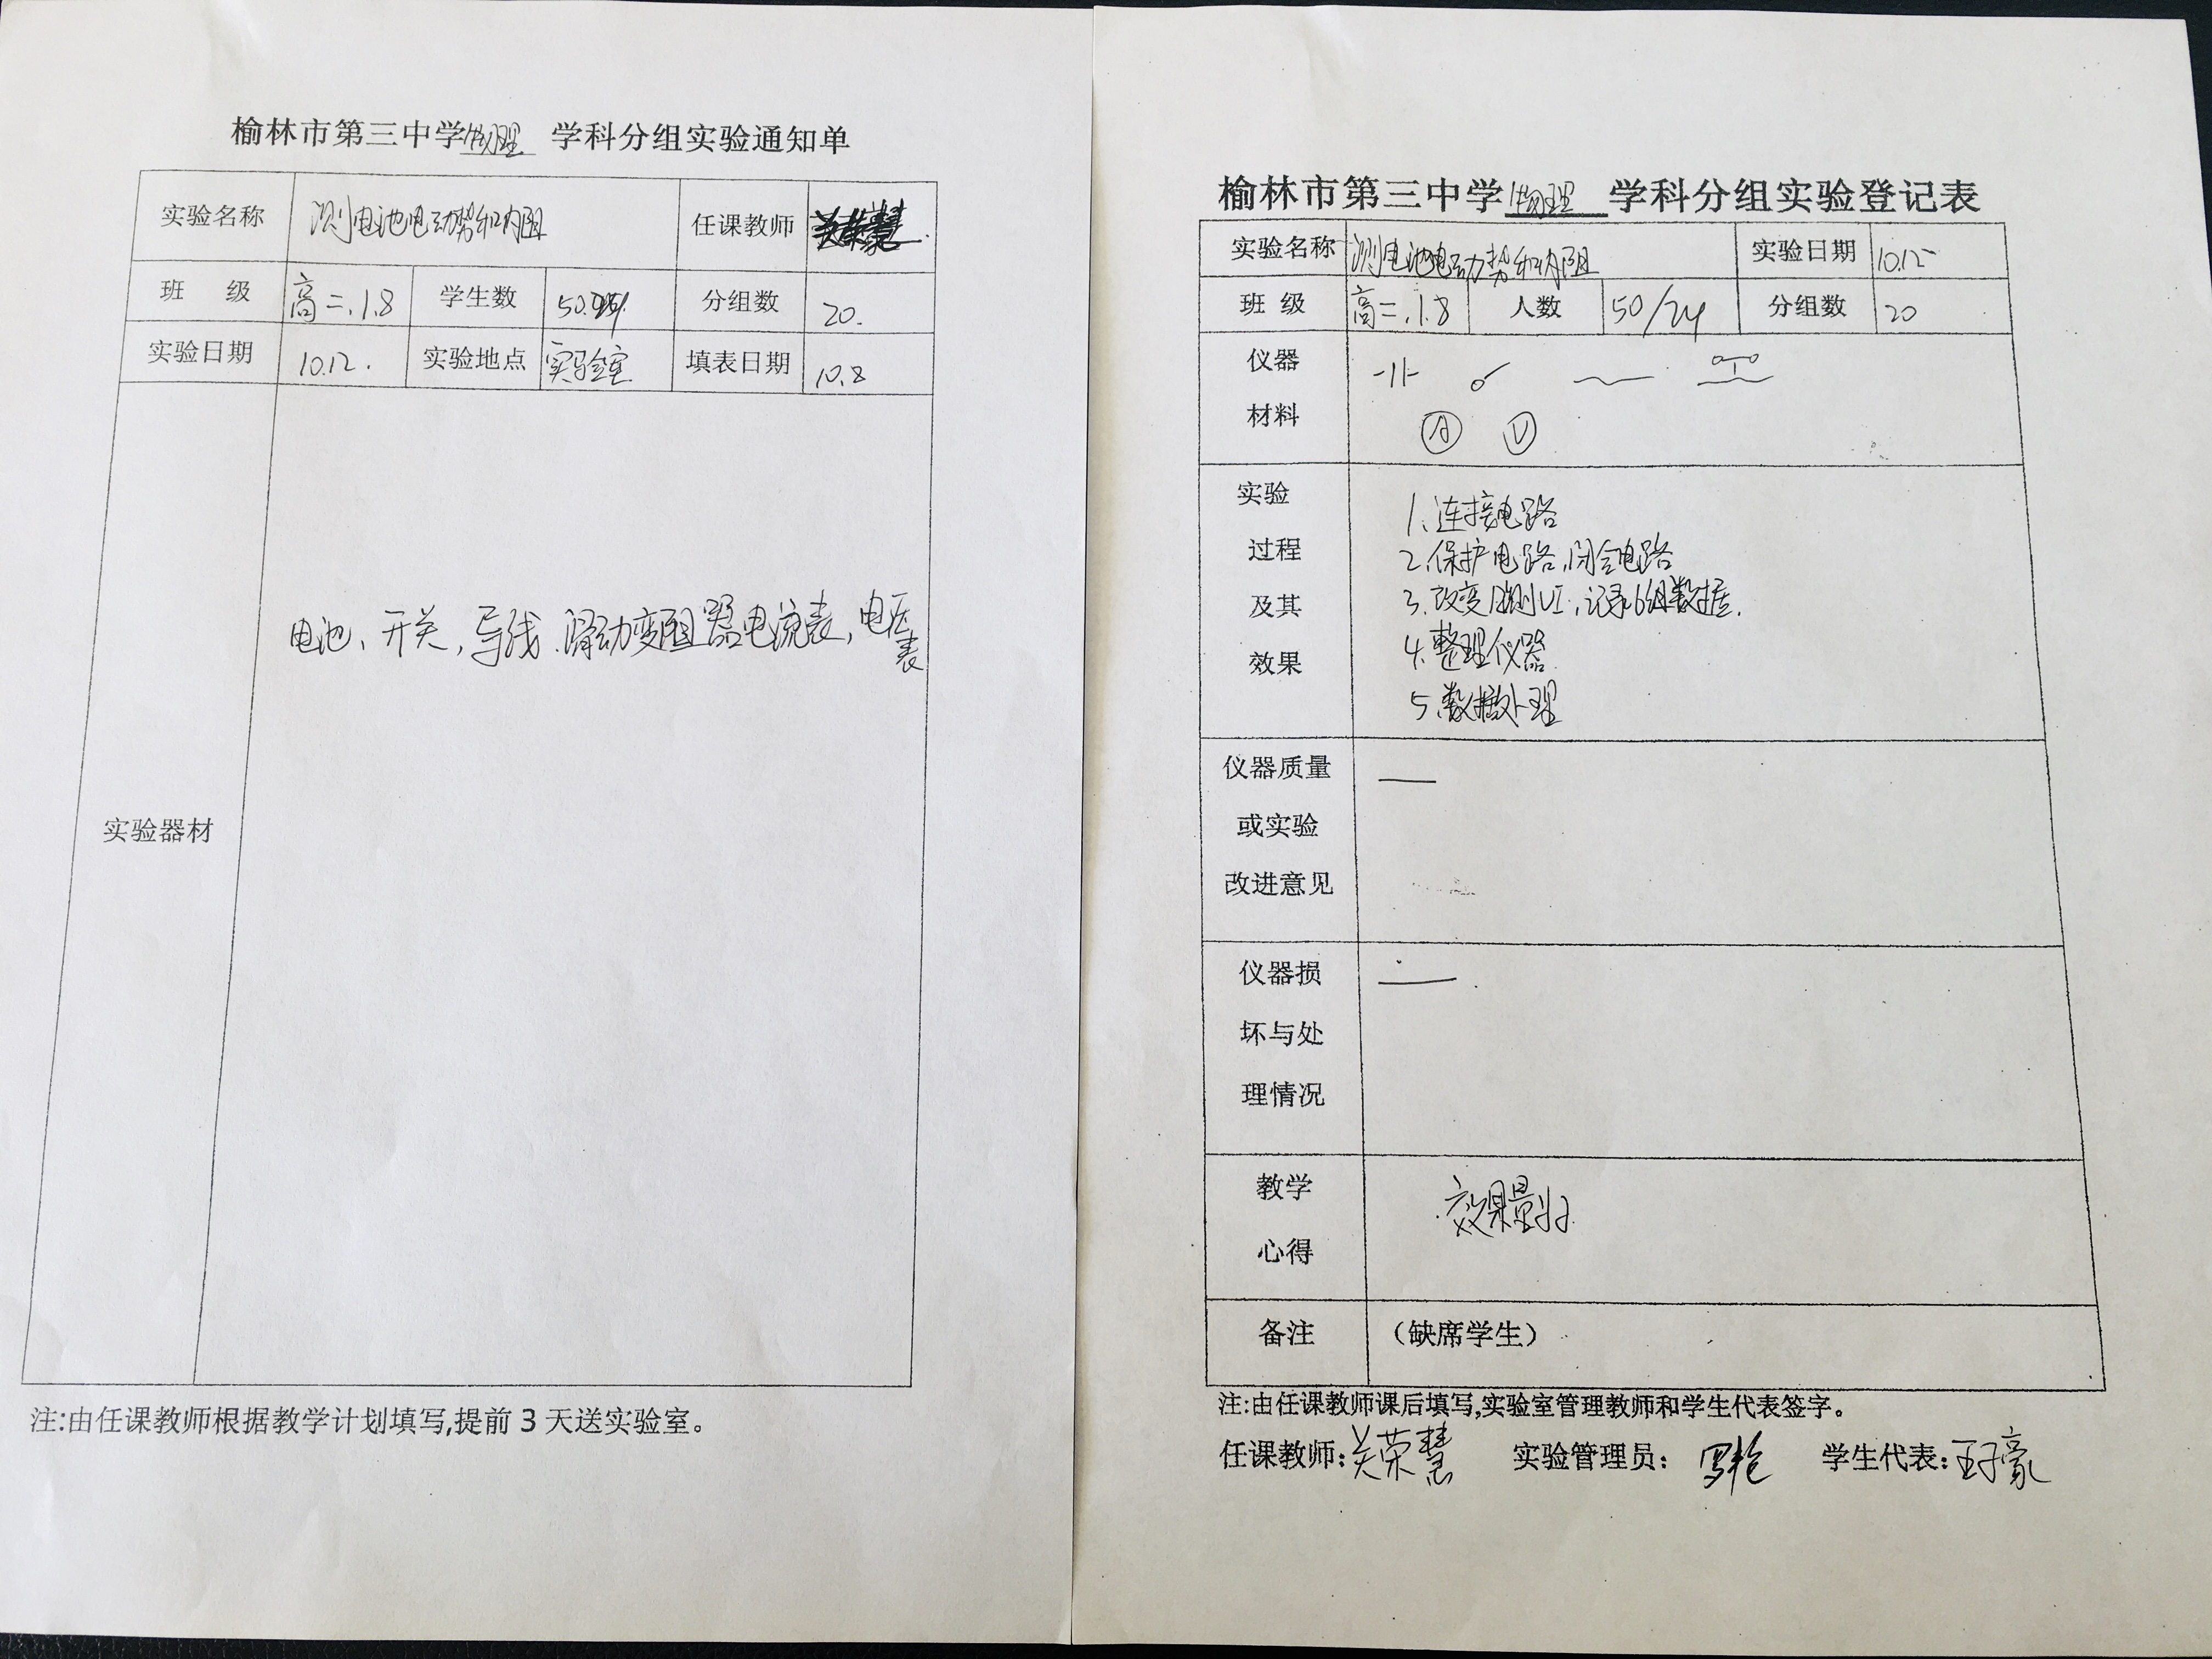 榆林市第三中学物理 学科分组实验通知单
实验名称 测电池电动势和内阻 任课教师 关荣慧
班 级 高二.1.8 学生数 50. 分组数 20.
实验日期 10.12. 实验地点 实验室 填表日期 10.8
实验器材 电池、开关,导线.滑动变阻器电流表,电压表
注:由任课教师根据教学计划填写,提前3天送实验室。
榆林市第三中学物理 学科分组实验登记表
实验名称 测电池电动势和内阻 实验日期 10.12
班 级 高二.1.8 人数 50/24 分组数 20
仪器
材料
A V
实验
过程
及其
效果
1.连接电路
2.保护电路,闭合电路
3.改变R测UI,记录6组数据.
4.整理仪器
5.数据处理
仪器质量
或实验
改进意见
仪器损
坏与处
理情况
教学
心得
效果最好
备注 (缺席学生)
注:由任课教师课后填写,实验室管理教师和学生代表签字。
任课教师:关荣慧 实验管理员: 学生代表:王子豪